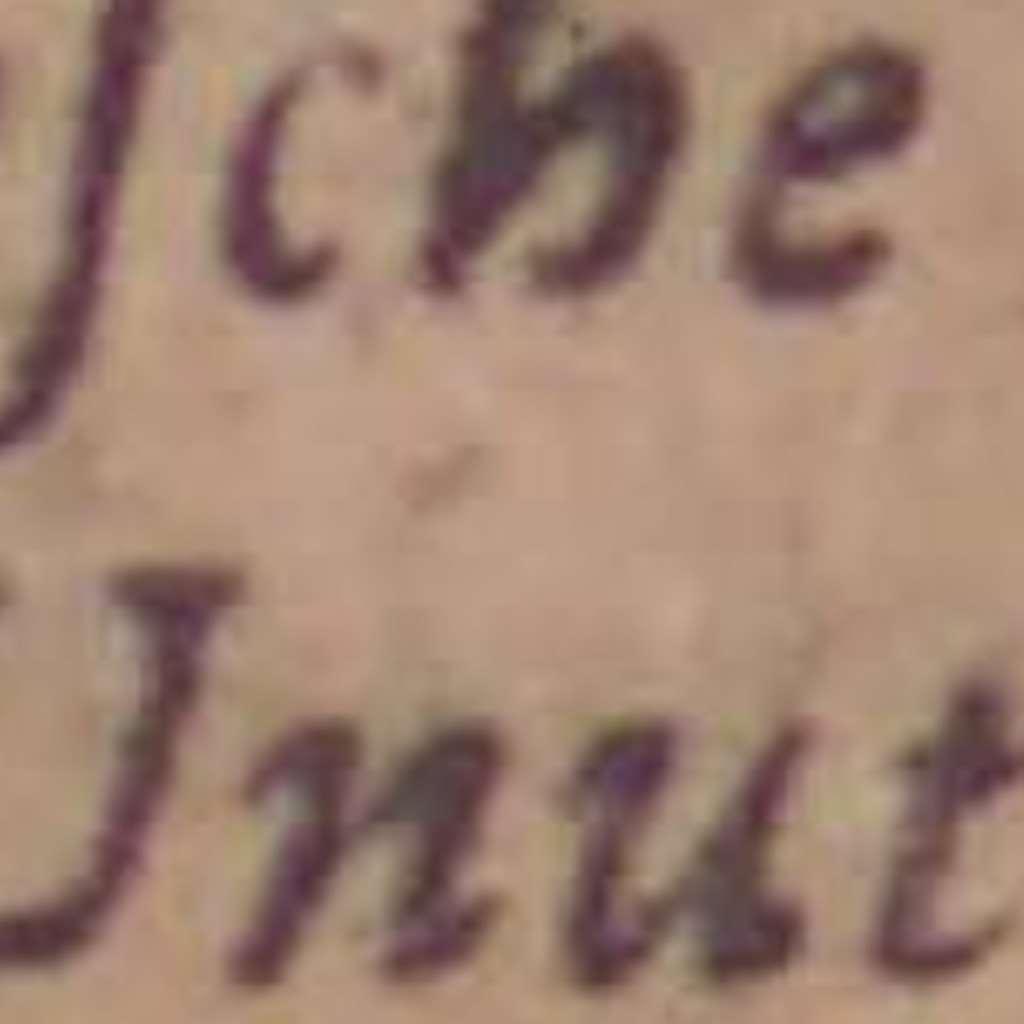 ſche
Unut